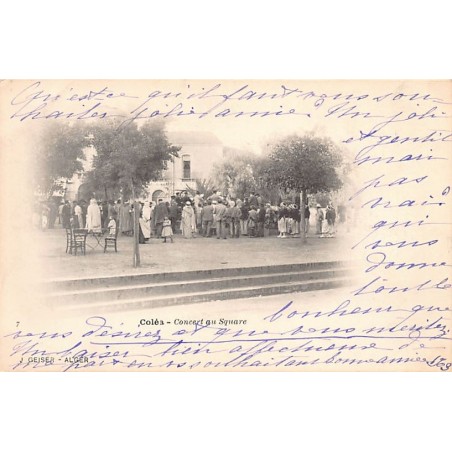 Qu'est ce qu'il faut vous sou-
haiter jolie amie. Un joli
et gentil
mari
pas
vrai
qui
vous
donne
toute
bonheur que
7
Coléa - Concert au Square
vous désirez et que vous méritez.
Un baiser bien affectueux de
J. GEISER - ALGER
ma part en vs souhaitant bonne année